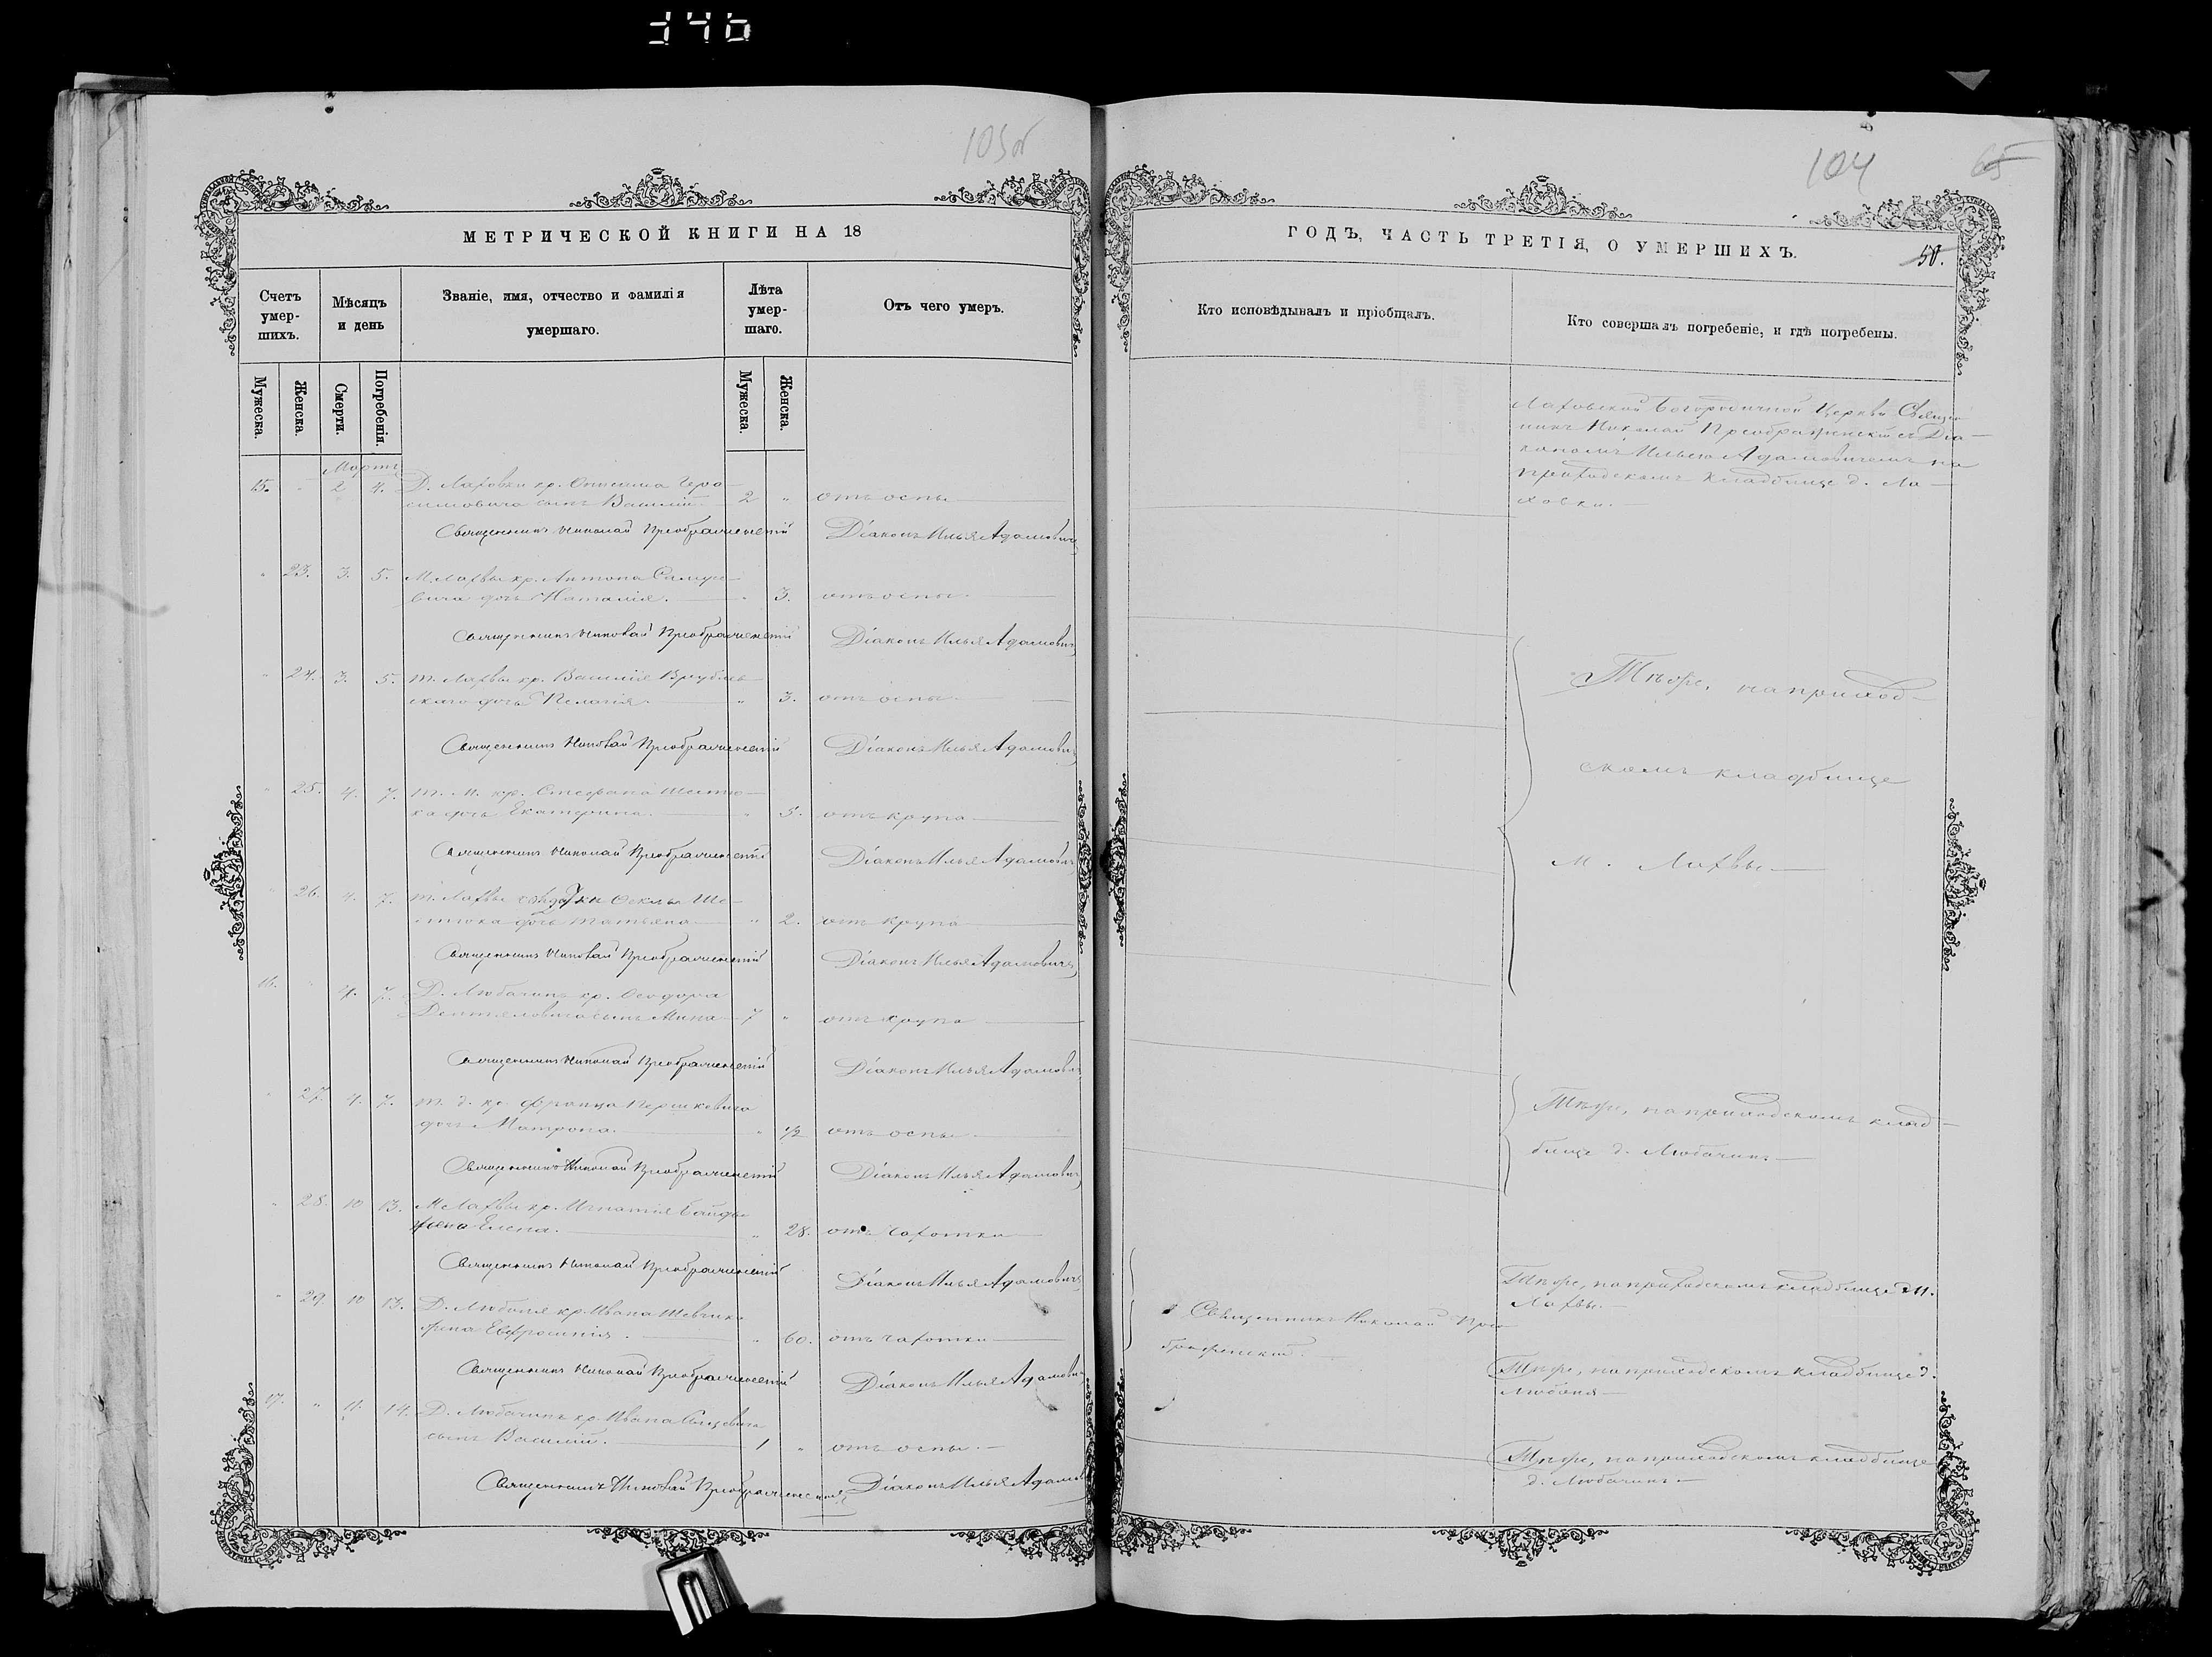 346
103об
МЕТРИЧЕСКОЙ КНИГИ НА 18
Счетъ умер-шихъ.
Мѣсяцъ и день
Званіе, имя, отчество и фамилія умершаго.
Лѣта умер-шаго.
Отъ чего умеръ.
Мужеска.
Женска.
Смерти.
Погребенія.
Мужеска.
Женска.
Мартъ
15. " 2 4. Д. Лаховки кр. Онисима Гера-
симовича сынъ Василій 2 " отъ оспы
Священникъ Николай Преображенскій Діаконъ Илья Адамовичъ
" 23. 3. 5. М. Лахвы кр. Антона
вича дочь Наталія. " 3. отъ оспы
Священникъ Николай Преображенскій Діаконъ Илья Адамовичъ
" 24. 3. 5. т. Лахвы кр. Василія Врубль-
скаго дочь Пелагія. " 3. отъ оспы
Священникъ Николай Преображенскій Діаконъ Илья Адамовичъ
" 25. 4. 7. т. М. кр. Стефана
дочь Екатерина. " 5. отъ крупа
Священникъ Николай Преображенскій Діаконъ Илья Адамовичъ
" 26. 4. 7. т. Лахвы Феклы
дочь Татьяна " 2. отъ крупа
Священникъ Николай Преображенскій Діаконъ Илья Адамовичъ
16. " 4. 7. Д. Любачинъ кр. Ѳеодора
сынъ Мина 7 " отъ крупа
Священникъ Николай Преображенскій Діаконъ Илья Адамовичъ
" 27. 4. 7. т. д. кр. Франца
дочь Матрона. " 1/2 отъ оспы
Священникъ Николай Преображенскій Діаконъ Илья Адамовичъ
" 28. 10 13. М. Лахвы кр. Игнатія
жена Елена. " 28. отъ чахотки
Священникъ Николай Преображенскій Діаконъ Илья Адамовичъ
" 29. 10 13. Д. Любаня кр. Ивана Шевчика
жена Евфросинія. " 60. отъ чахотки
Священникъ Николай Преображенскій Діаконъ Илья Адамовичъ
17. " 11. 14. Д. Любачинъ кр. Ивана
сынъ Василій. 1 " отъ оспы.
Священникъ Николай Преображенскій Діаконъ Илья Адамов
104
65
ГОДЪ, ЧАСТЬ ТРЕТІЯ, О УМЕРШИХЪ.
50.
Кто исповѣдывалъ и пріобщалъ.
Кто совершалъ погребеніе, и гдѣ погребены.
Лаховской Богородичной Церкви Священ
никъ Николай Преображенскій съ Діа-
кономъ Ильею Адамовичемъ на
приходскомъ кладбище д. Ла-
ховки.
Тѣже, на приход-
скомъ кладбище
М. Лахвы
Тѣже, на приходскомъ клад-
бище д. Любачинъ
Тѣже, на приходскомъ кладбище М.
Лахвы.
Священникъ Николай Прео
браженскій.
Тѣже, на приходскомъ кладбище д.
Любаня
Тѣже, на приходскомъ кладбище
д. Любачинъ